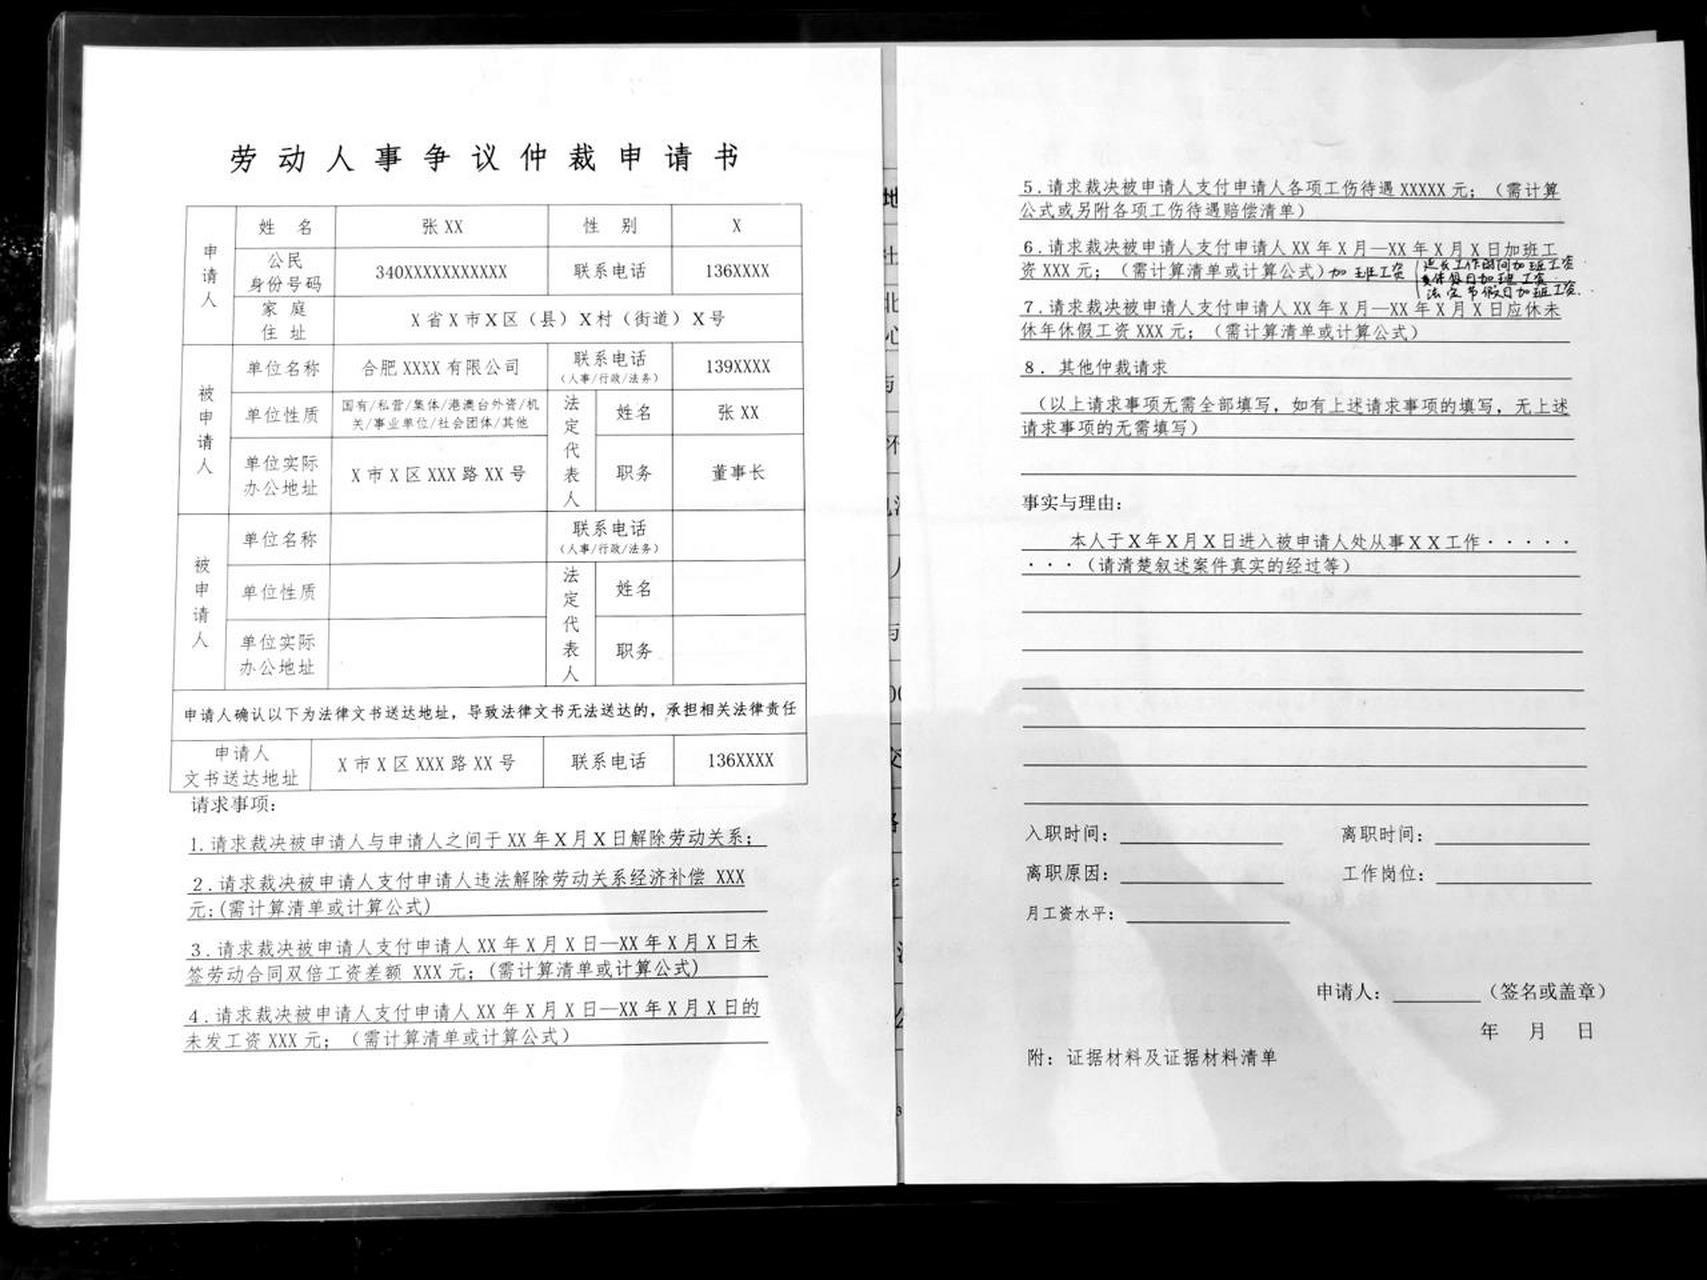 劳动人事争议仲裁申请书
申请人
姓 名 张XX 性 别 X
公民
身份号码 340XXXXXXXXXXX 联系电话 136XXXX
家庭
住址 X省X市X区（县）X村（街道）X号
被申请人
单位名称 合肥XXXX有限公司 联系电话 139XXXX
（人事/行政/法务）
单位性质 国有/私营/集体/港澳台外资/机
关/事业单位/社会团体/其他
法定代表人 姓名 张XX
单位实际
办公地址 X市X区XXX路XX号 职务 董事长
被申请人
单位名称 联系电话
（人事/行政/法务）
单位性质 法定代表人 姓名
单位实际
办公地址 职务
申请人确认以下为法律文书送达地址，导致法律文书无法送达的，承担相关法律责任
申请人
文书送达地址 X市X区XXX路XX号 联系电话 136XXXX
请求事项：
1.请求裁决被申请人与申请人之间于XX年X月X日解除劳动关系；
2.请求裁决被申请人支付申请人违法解除劳动关系经济补偿 XXX
元;(需计算清单或计算公式)
3.请求裁决被申请人支付申请人XX年X月X日—XX年X月X日未
签劳动合同双倍工资差额 XXX元；(需计算清单或计算公式)
4.请求裁决被申请人支付申请人XX年X月X日—XX年X月X日的
未发工资XXX元；（需计算清单或计算公式）
5.请求裁决被申请人支付申请人各项工伤待遇XXXXX元；（需计算
公式或另附各项工伤待遇赔偿清单）
6.请求裁决被申请人支付申请人XX年X月—XX年X月X日加班工
资XXX元；（需计算清单或计算公式）加班工资
延长工作时间加班工资
休假日加班工资
法定节假日加班工资
7.请求裁决被申请人支付申请人XX年X月—XX年X月X日应休未
休年休假工资XXX元；（需计算清单或计算公式）
8. 其他仲裁请求
（以上请求事项无需全部填写，如有上述请求事项的填写，无上述
请求事项的无需填写）
事实与理由：
本人于X年X月X日进入被申请人处从事XX工作·····
···（请清楚叙述案件真实的经过等）
入职时间： 离职时间：
离职原因： 工作岗位：
月工资水平：
申请人： （签名或盖章）
年 月 日
附：证据材料及证据材料清单